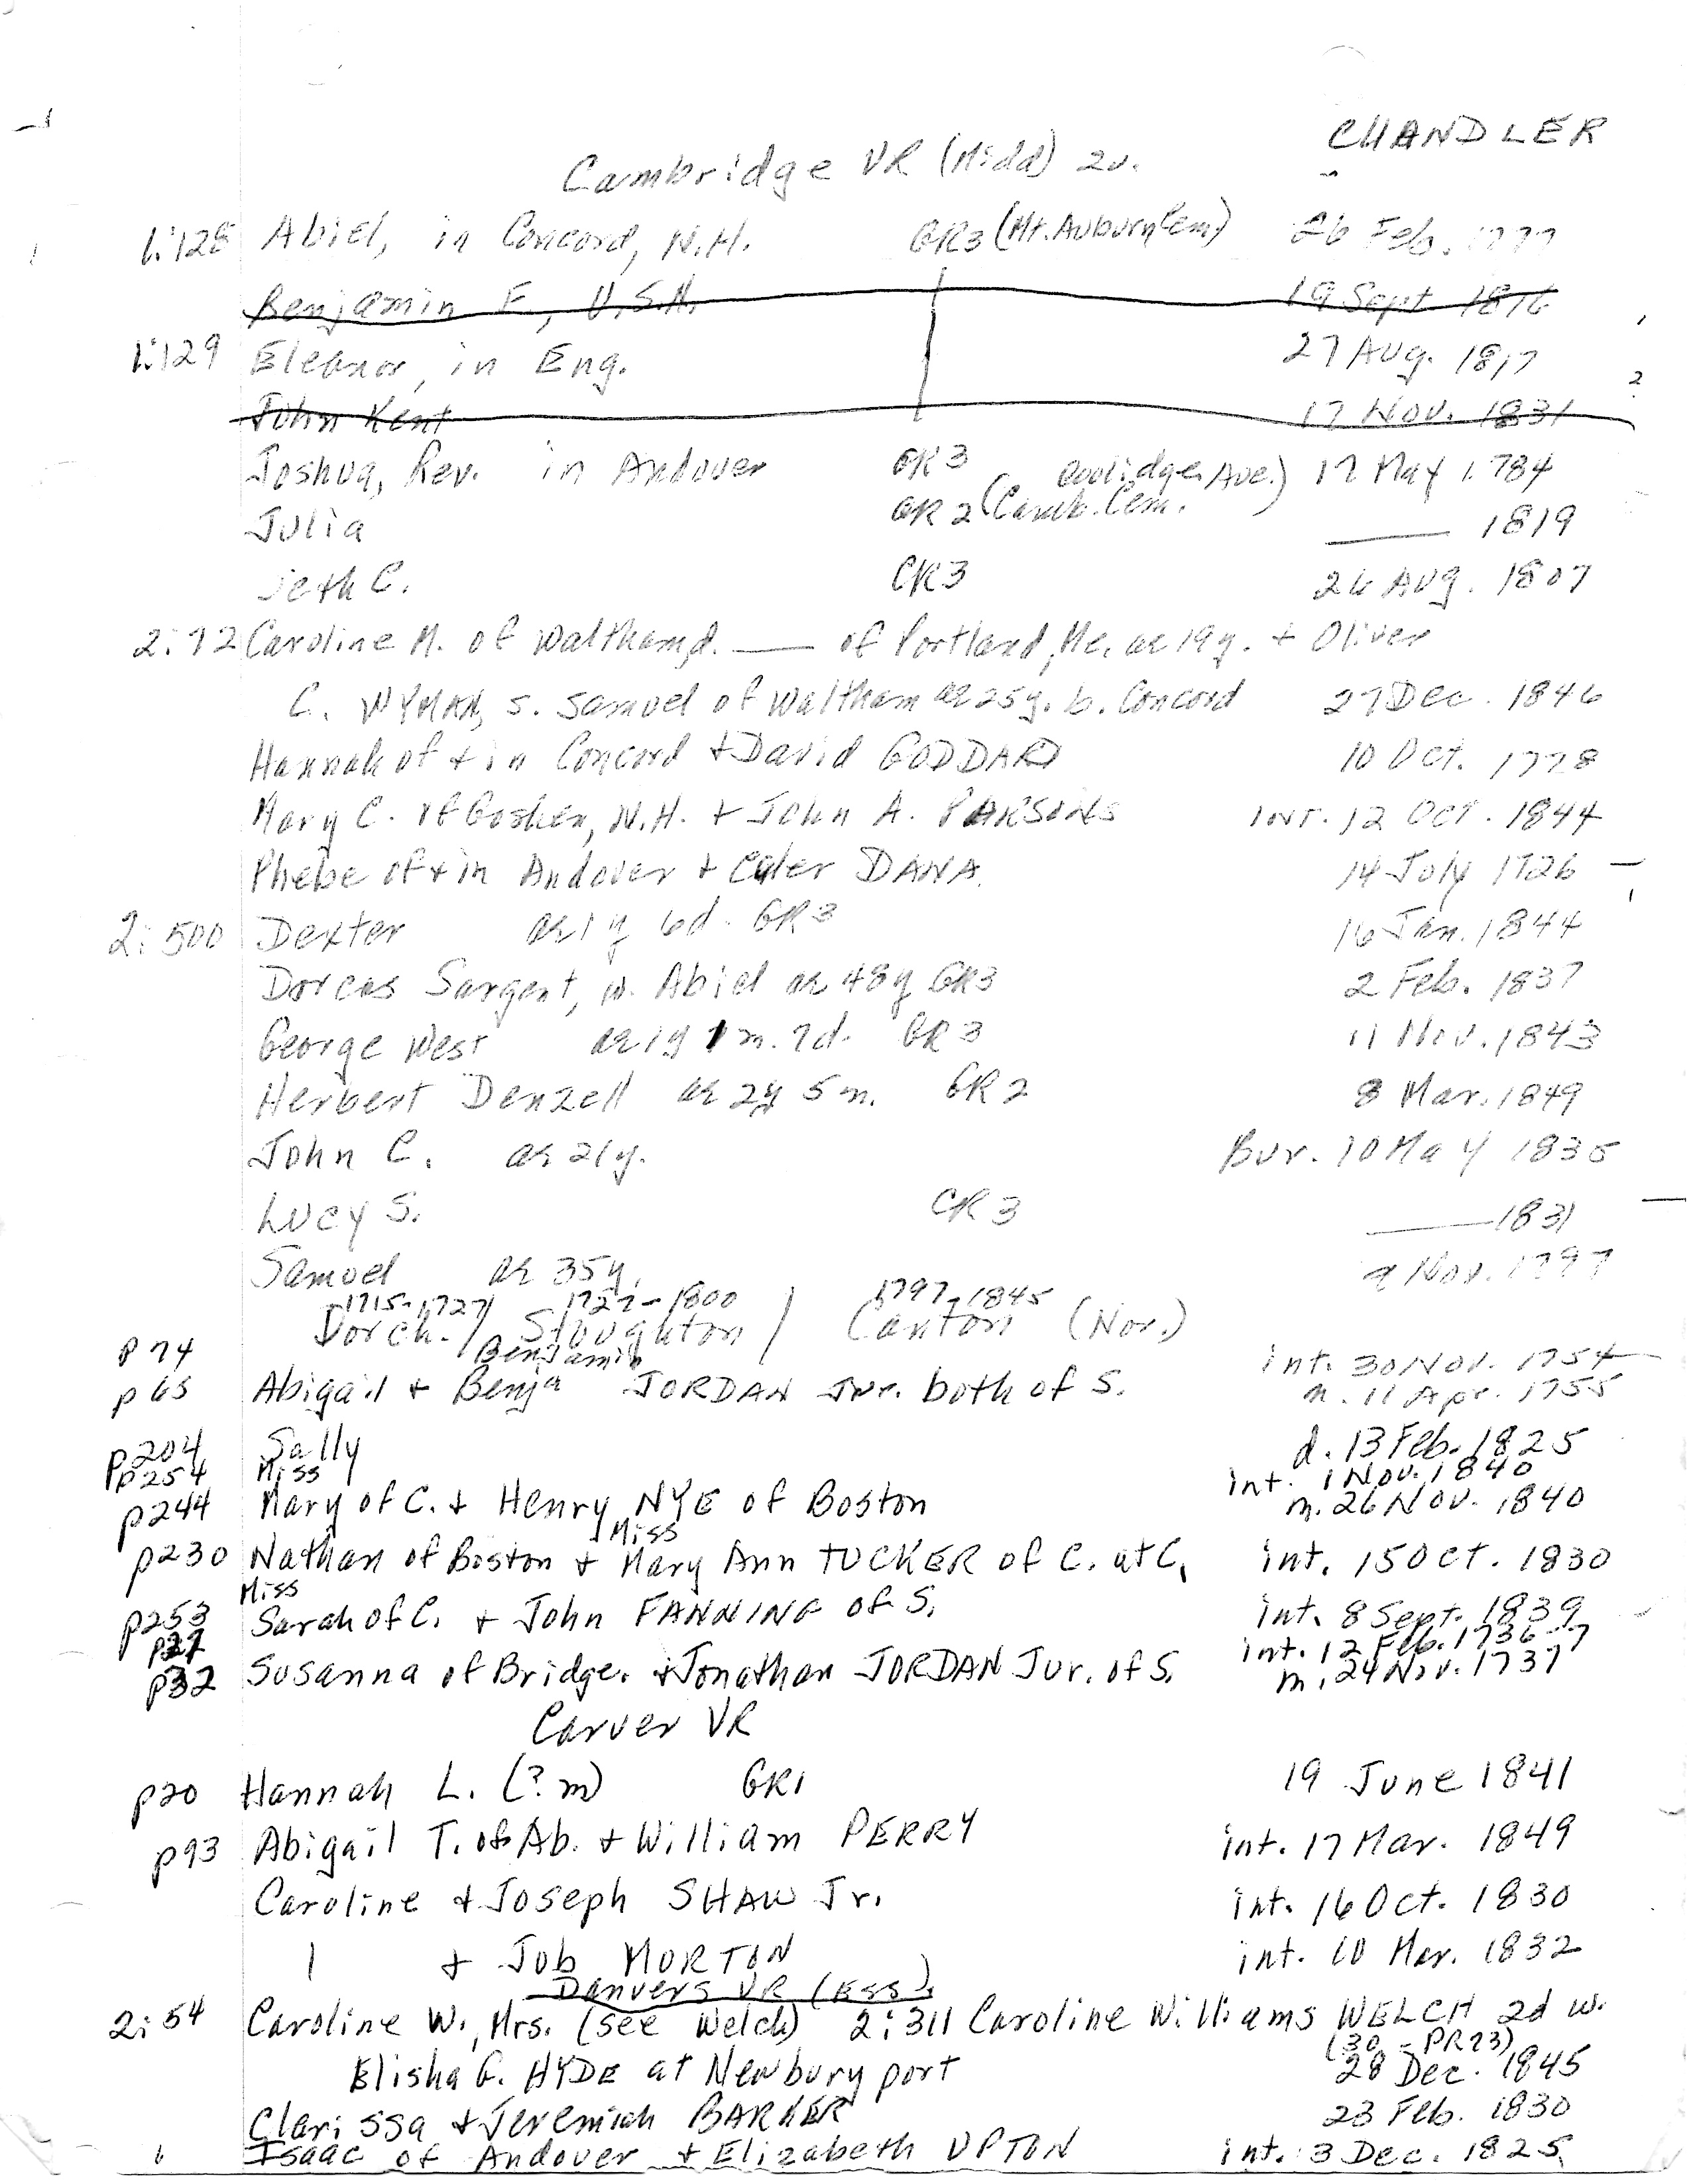 CHANDLER
Cambridge VR (Midd) 2v.
1:128 Abiel, in Concord, N.H. GR3 (Mt. Auburn Cem) 26 Feb. 1777
Benjamin F., U.S.N. 19 Sept 1816
1:129 Eleanor, in Eng. 27 Aug. 1817
John Kent 17 Nov. 1831
Joshua, Rev. in Andover GR3 17 May 1784
Julia GR2 (Camb. Cem. Coolidge Ave.) —— 1819
Seth C. GR3 26 Aug. 1807
2:72 Caroline M. of Waltham, d. —— of Portland, Me. ae 19y. + Oliver
C. WYMAN, s. Samuel of Waltham ae 25y. b. Concord 27 Dec. 1846
Hannah of + in Concord + David GODDARD 10 Oct. 1778
Mary C. of Goshen, N.H. + John A. PARSONS int. 12 Oct. 1844
Phebe of + in Andover + Caler DANA 14 July 1726
2:500 Dexter ae 1y 6d. GR3 16 Jan. 1844
Dorcas Sargent, w. Abiel ae 48y GR3 2 Feb. 1837
George West ae 1y 1m. 7d. GR3 11 Nov. 1843
Herbert Denzell ae 2y 5m. GR2 8 Mar. 1849
John C. ae 21y. Bur. 10 May 1835
Lucy S. GR3 —— 1831
Samuel ae 35y. 9 Nov. 1797
1715-1727 1727-1800 1797-1845
Dorch. / Stoughton / Canton (Nor.)
p74 Benjamin int. 30 Nov. 1754
p65 Abigail + Benja JORDAN Jur. both of S. m. 11 Apr. 1755
p204 Sally d. 13 Feb. 1825
p254 Miss int. 1 Nov. 1840
p244 Mary of C. + Henry NYE of Boston m. 26 Nov. 1840
Miss
p230 Nathan of Boston + Mary Ann TUCKER of C. at C. int. 15 Oct. 1830
Miss
p253 Sarah of C. + John FANNING of S. int. 8 Sept. 1839
p27 int. 12 Feb. 1736-7
p32 Susanna of Bridge. + Jonathan JORDAN Jur. of S. m. 24 Nov. 1737
Carver VR
p20 Hannah L. (? m) GR1 19 June 1841
p93 Abigail T. of Ab. + William PERRY int. 17 Mar. 1849
Caroline + Joseph SHAW Jr. int. 16 Oct. 1830
| + Job MORTON int. 10 Mar. 1832
Danvers VR (Ess).
2:54 Caroline W., Mrs. (see Welch) 2:311 Caroline Williams WELCH 2d w.
(30 - PR23)
Elisha G. HYDE at Newbury port 28 Dec. 1845
Clarissa + Jeremiah BARKER 23 Feb. 1830
Isaac of Andover + Elizabeth UPTON int. 3 Dec. 1825